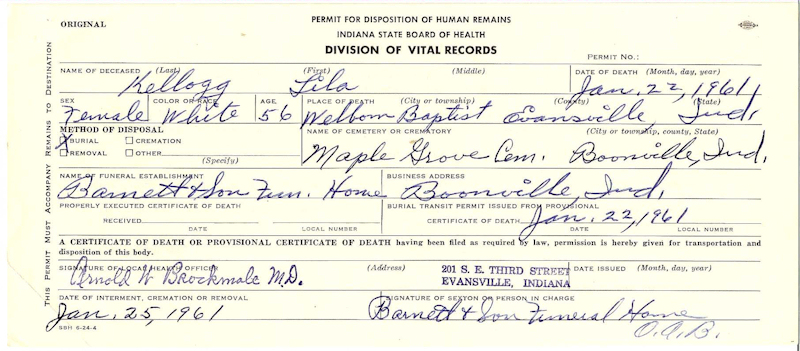 ORIGINAL
PERMIT FOR DISPOSITION OF HUMAN REMAINS
INDIANA STATE BOARD OF HEALTH
DIVISION OF VITAL RECORDS
PERMIT NO.:
THIS PERMIT MUST ACCOMPANY REMAINS TO DESTINATION
NAME OF DECEASED (Last) (First) (Middle) DATE OF DEATH (Month, day, year)
Kellogg Lila Jan. 22, 1961
SEX COLOR OR RACE AGE PLACE OF DEATH (City or township) (County) (State)
Female White 56 Welborn Baptist Evansville, Ind.
METHOD OF DISPOSAL NAME OF CEMETERY OR CREMATORY (City or township, county, State)
X BURIAL CREMATION
REMOVAL OTHER
(Specify)
Maple Grove Cem. Boonville, Ind.
NAME OF FUNERAL ESTABLISHMENT BUSINESS ADDRESS
Barnett & Son Fun. Home Boonville, Ind.
PROPERLY EXECUTED CERTIFICATE OF DEATH BURIAL TRANSIT PERMIT ISSUED FROM PROVISIONAL
RECEIVED CERTIFICATE OF DEATH Jan. 22, 1961
DATE LOCAL NUMBER DATE LOCAL NUMBER
A CERTIFICATE OF DEATH OR PROVISIONAL CERTIFICATE OF DEATH having been filed as required by law, permission is hereby given for transportation and
disposition of this body.
SIGNATURE OF LOCAL HEALTH OFFICER (Address) 201 S. E. THIRD STREET DATE ISSUED (Month, day, year)
Arnold W Brockmole M.D. EVANSVILLE, INDIANA
DATE OF INTERMENT, CREMATION OR REMOVAL SIGNATURE OF SEXTON OR PERSON IN CHARGE
Jan. 25, 1961 Barnett & Son Funeral Home
O.A.B.
SBH 6-24-4